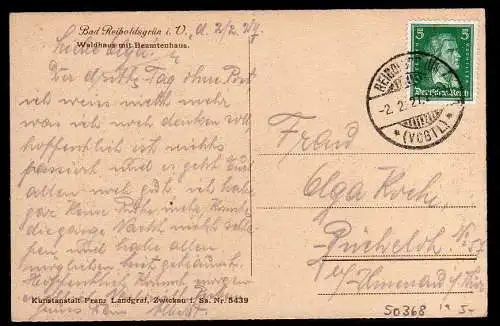 Bad Reiboldsgrün i. V., d. 2/2. 27
Waldhaus mit Beamtenhaus.
Liebe Olga!
Der dritte Tag ohne Post
ich weiss nicht mehr
was ich noch denken soll
hoffentlich ist nichts
passiert und es geht Euch
allen noch gut, ich habe
gar keine Ruhe mehr, konnte
die ganze Nacht nicht schla-
fen und habe allen
Hoffentlich kommt morgen
Kunstanstalt Franz Landgraf, Zwickau i. Sa. Nr. 5439
5 5
Deutsches Reich
-2.2.27
*(VOGTL)*
Frau
Olga Koch
Bücheloh No 57
b/ Ilmenau i/Thür
50368